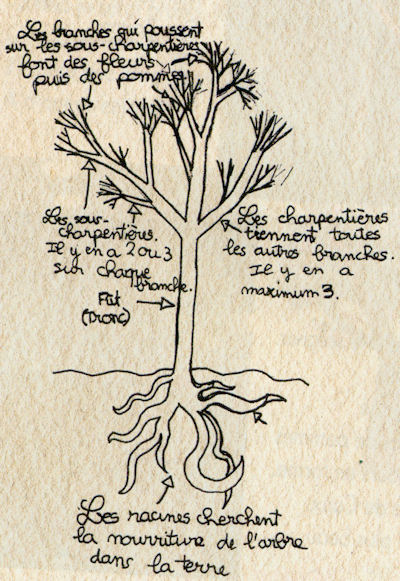 Les branches qui poussent
sur les sous-charpentières
font des fleurs
puis des pommes.
Les sous-
charpentières.
Il y en a 2 ou 3
sur chaque
branche.
Les charpentières
tiennent toutes
les autres branches.
Il y en a
maximum 3.
Fût
(Tronc)
Les racines cherchent
la nourriture de l'arbre
dans la terre